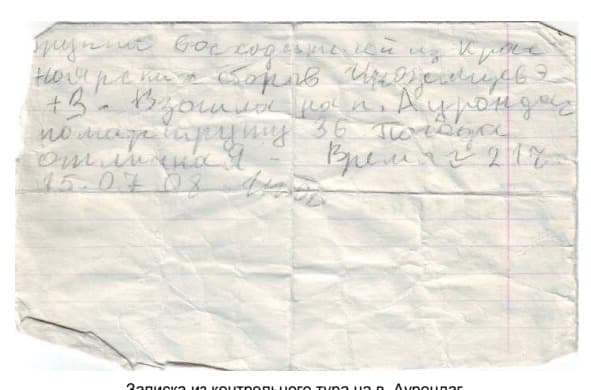 группа восходителей из Крас
ноярских сборов Иноземцев Э
+3. Взошла на п. Аурондаг
по маршруту 3Б Погода
отличная - Время 21ч
15.07.08
Записка из контрольного тура на в. Аурондаг